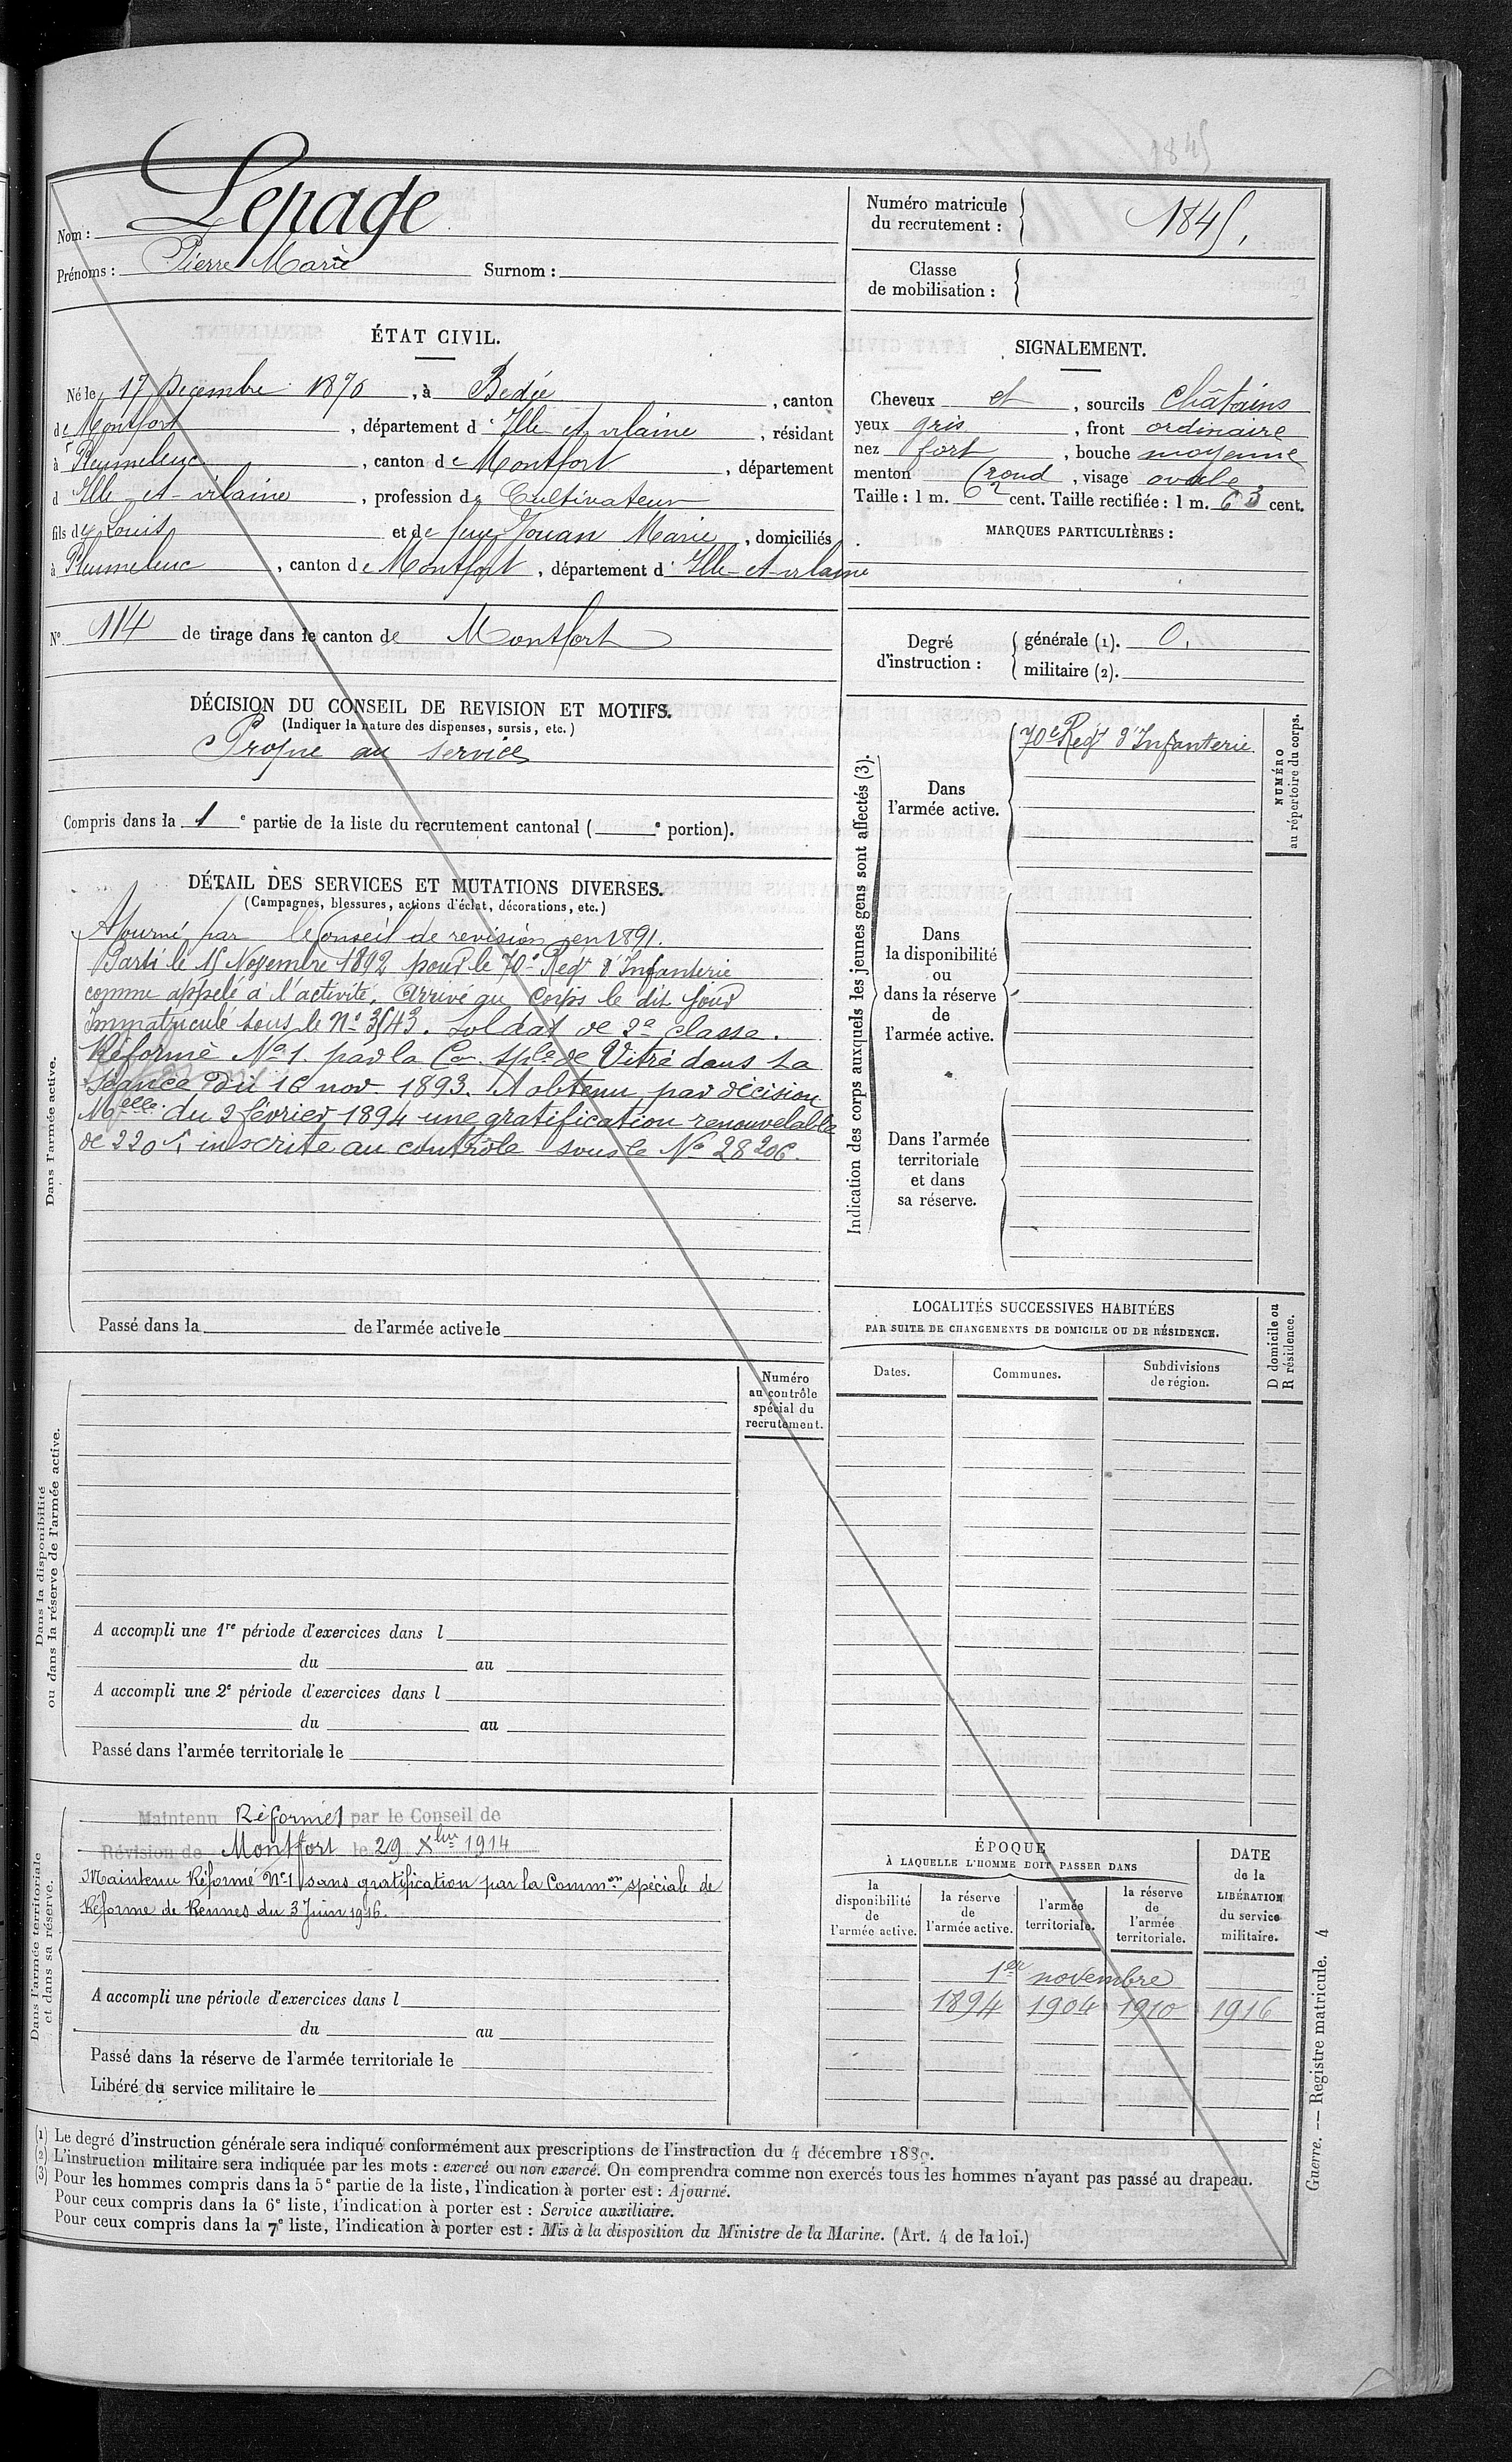 1845
Nom : Lepage
Prénoms : Pierre Marie Surnom :
Numéro matricule
du recrutement : 1845.
Classe
de mobilisation :
ÉTAT CIVIL.
Né le 17 Décembre 1870, à Bedée, canton
de Montfort, département d'Ille et vilaine, résidant
à Pleumeleuc, canton de Montfort, département
d Ille-et-vilaine, profession de Cultivateur
fils de Louis et de feue Jouan Marie, domiciliés
à Pleumeleuc, canton de Montfort, département d'Ille-et-vilaine
SIGNALEMENT.
Cheveux et, sourcils châtains
yeux gris, front ordinaire
nez fort, bouche moyenne
menton rond, visage ovale
Taille : 1 m. 62 cent. Taille rectifiée : 1 m. 63 cent.
MARQUES PARTICULIÈRES :
N° 114 de tirage dans le canton de Montfort
Degré
d'instruction :
générale (1). 0.
militaire (2).
DÉCISION DU CONSEIL DE REVISION ET MOTIFS.
(Indiquer la nature des dispenses, sursis, etc.)
Propre au service
Compris dans la 1e partie de la liste du recrutement cantonal ( e portion).
DÉTAIL DES SERVICES ET MUTATIONS DIVERSES.
(Campagnes, blessures, actions d'éclat, décorations, etc.)
Dans l'armée active.
Ajourné par le Conseil de revision en 1891.
Parti le 15 Novembre 1892 pour le 70e Regt d'Infanterie
comme appelé à l'activité. Arrivé au Corps le dit jour
Immatriculé sous le N° 3543. Soldat de 2e classe.
Réformé No 1. par la Con Sple de Vitré dans la
séance du 16 nov. 1893. A obtenu par décision
Melle du 2 février 1894 une gratification renouvelable
de 220 f. inscrite au contrôle sous le No 28206.
Passé dans la de l'armée active le
Indication des corps auxquels les jeunes gens sont affectés (3).
Dans
l'armée active.
70e Regt d'Infanterie
NUMÉRO
au répertoire du corps.
Dans
la disponibilité
ou
dans la réserve
de
l'armée active.
Dans l'armée
territoriale
et dans
sa réserve.
LOCALITÉS SUCCESSIVES HABITÉES
PAR SUITE DE CHANGEMENTS DE DOMICILE OU DE RÉSIDENCE.
D domicile ou
R résidence.
Dates.
Communes.
Subdivisions
de région.
Dans la disponibilité
ou dans la réserve de l'armée active.
Numéro
au contrôle
spécial du
recrutement.
A accompli une 1re période d'exercices dans l
du au
A accompli une 2e période d'exercices dans l
du au
Passé dans l'armée territoriale le
Dans l'armée territoriale
et dans sa réserve.
Maintenu Réformé 1 par le Conseil de
Révision de Montfort le 29 Xbre 1914
Maintenu Réformé N°1 sans gratification par la Common spéciale de
Réforme de Rennes du 3 Juin 1916.
A accompli une période d'exercices dans l
du au
Passé dans la réserve de l'armée territoriale le
Libéré du service militaire le
ÉPOQUE
À LAQUELLE L'HOMME DOIT PASSER DANS
la
disponibilité
de
l'armée active.
la réserve
de
l'armée active.
l'armée
territoriale.
la réserve
de
l'armée
territoriale.
DATE
de la
LIBÉRATION
du service
militaire.
1er novembre
1894 1904 1910 1916
Guerre. — Registre matricule. 4
(1) Le degré d'instruction générale sera indiqué conformément aux prescriptions de l'instruction du 4 décembre 1889.
(2) L'instruction militaire sera indiquée par les mots : exercé ou non exercé. On comprendra comme non exercés tous les hommes n'ayant pas passé au drapeau.
(3) Pour les hommes compris dans la 5e partie de la liste, l'indication à porter est : Ajourné.
Pour ceux compris dans la 6e liste, l'indication à porter est : Service auxiliaire.
Pour ceux compris dans la 7e liste, l'indication à porter est : Mis à la disposition du Ministre de la Marine. (Art. 4 de la loi.)